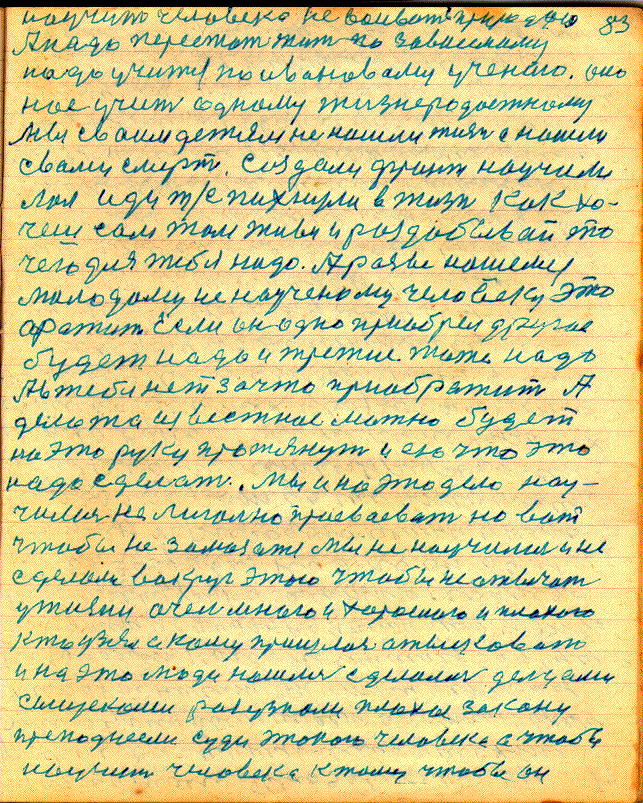 научить человека не воевать природою 83
А надо перестат жит по зависимому
надо учится по ивановому учению. оно
нас учит одному жизнерадостному
Мы своим детям не нашли жизн а нашли
свами смерт. Создали фронт научили
иди т/с пихнули в жизн как хо-
чеш сам там живи и раздобывай это
чего для тебя надо. А разви нашему
молодому не наученому человеку это
хратит если он одно приобрел другое
будет надо и третие тоже надо
А втебя нет зачто приобратит А
дело та известное можно будет
на это руку протянут и ею что это
надо сделат. Мы и на это дело нау-
чилися не лигално приеваеват но вот
чтобы не замаzат мы не научился и не
сделали вокруг этого чтобы не отвечат
у жизни очен много и хорошого и плохого
кто узял а кому пришлоя отысковат
и на это люди нашлис сделалис делцами
сищеками разузнали плохое закону
преподнесли суди этаково человека а чтобы
научит человека к тому чтобы он